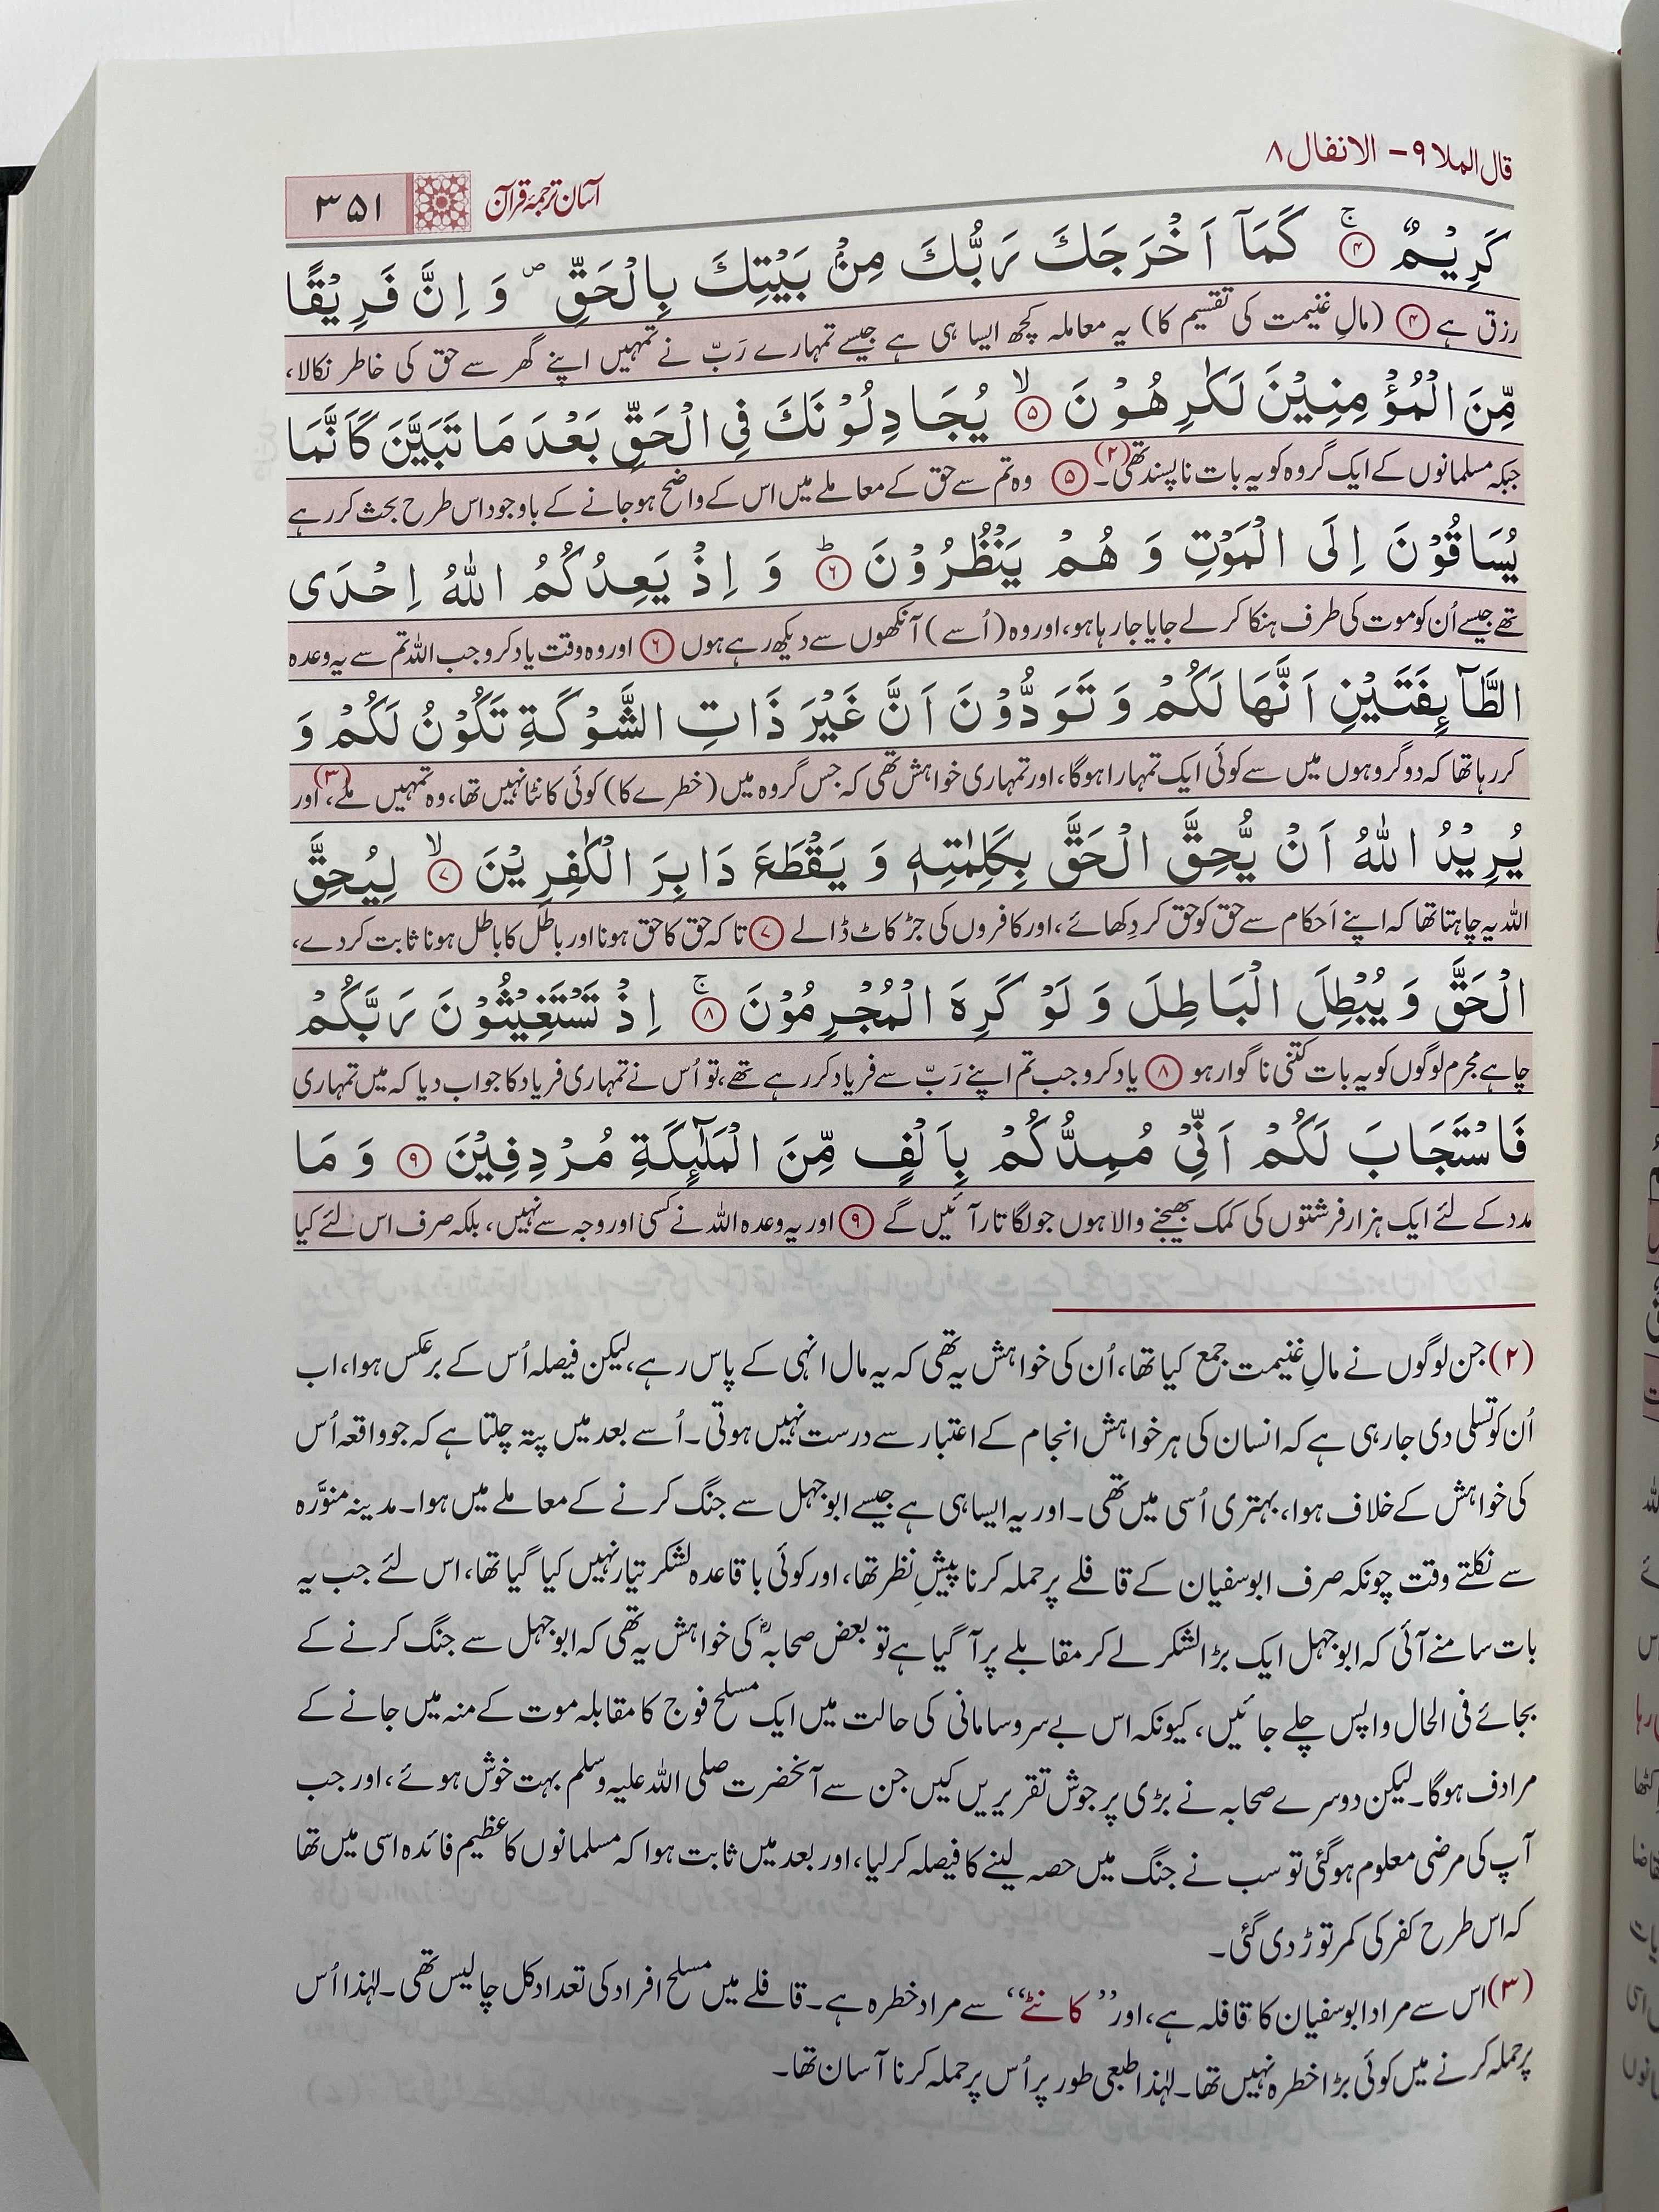 قال الملا ۹ – الانفال ۸
آسان ترجمۂ قرآن
۳۵۱
كَرِيْمٌ ۚ﴿۴﴾ كَمَاۤ اَخْرَجَكَ رَبُّكَ مِنْۢ بَيْتِكَ بِالْحَقِّ ۪ وَ اِنَّ فَرِيْقًا
رزق ہے ﴿۴﴾ (مالِ غنیمت کی تقسیم کا) یہ معاملہ کچھ ایسا ہی ہے جیسے تمہارے رَبّ نے تمہیں اپنے گھر سے حق کی خاطر نکالا،
مِّنَ الْمُؤْمِنِيْنَ لَكٰرِهُوْنَ ۙ﴿۵﴾ يُجَادِلُوْنَكَ فِي الْحَقِّ بَعْدَ مَا تَبَيَّنَ كَاَنَّمَا
جبکہ مسلمانوں کے ایک گروہ کو یہ بات ناپسند تھی۔(۲) ﴿۵﴾ وہ تم سے حق کے معاملے میں اس کے واضح ہوجانے کے باوجود اس طرح بحث کر رہے
يُسَاقُوْنَ اِلَى الْمَوْتِ وَ هُمْ يَنْظُرُوْنَ ؕ﴿۶﴾ وَ اِذْ يَعِدُكُمُ اللّٰهُ اِحْدَى
تھے جیسے اُن کو موت کی طرف ہنکا کر لے جایا جا رہا ہو، اور وہ (اُسے) آنکھوں سے دیکھ رہے ہوں ﴿۶﴾ اور وہ وقت یاد کرو جب اللہ تم سے یہ وعدہ
الطَّآىِٕفَتَيْنِ اَنَّهَا لَكُمْ وَ تَوَدُّوْنَ اَنَّ غَيْرَ ذَاتِ الشَّوْكَةِ تَكُوْنُ لَكُمْ وَ
کر رہا تھا کہ دو گروہوں میں سے کوئی ایک تمہارا ہوگا، اور تمہاری خواہش تھی کہ جس گروہ میں (خطرے کا) کوئی کانٹا نہیں تھا، وہ تمہیں ملے،(۳) اور
يُرِيْدُ اللّٰهُ اَنْ يُّحِقَّ الْحَقَّ بِكَلِمٰتِهٖ وَ يَقْطَعَ دَابِرَ الْكٰفِرِيْنَ ۙ﴿۷﴾ لِيُحِقَّ
اللہ یہ چاہتا تھا کہ اپنے اَحکام سے حق کو حق کر دِکھائے، اور کافروں کی جڑ کاٹ ڈالے ﴿۷﴾ تاکہ حق کا حق ہونا اور باطل کا باطل ہونا ثابت کر دے،
الْحَقَّ وَ يُبْطِلَ الْبَاطِلَ وَ لَوْ كَرِهَ الْمُجْرِمُوْنَ ۚ﴿۸﴾ اِذْ تَسْتَغِيْثُوْنَ رَبَّكُمْ
چاہے مجرم لوگوں کو یہ بات کتنی ناگوار ہو ﴿۸﴾ یاد کرو جب تم اپنے رَبّ سے فریاد کر رہے تھے، تو اُس نے تمہاری فریاد کا جواب دیا کہ میں تمہاری
فَاسْتَجَابَ لَكُمْ اَنِّيْ مُمِدُّكُمْ بِاَلْفٍ مِّنَ الْمَلٰٓىِٕكَةِ مُرْدِفِيْنَ ﴿۹﴾ وَ مَا
مدد کے لئے ایک ہزار فرشتوں کی کمک بھیجنے والا ہوں جو لگاتار آئیں گے ﴿۹﴾ اور یہ وعدہ اللہ نے کسی اور وجہ سے نہیں، بلکہ صرف اس لئے کیا
(۲) جن لوگوں نے مالِ غنیمت جمع کیا تھا، اُن کی خواہش یہ تھی کہ یہ مال انہی کے پاس رہے، لیکن فیصلہ اُس کے برعکس ہوا، اب
اُن کو تسلی دی جارہی ہے کہ انسان کی ہر خواہش انجام کے اعتبار سے درست نہیں ہوتی۔ اُسے بعد میں پتہ چلتا ہے کہ جو واقعہ اُس
کی خواہش کے خلاف ہوا، بہتری اُسی میں تھی۔ اور یہ ایسا ہی ہے جیسے ابوجہل سے جنگ کرنے کے معاملے میں ہوا۔ مدینہ منوَّرہ
سے نکلتے وقت چونکہ صرف ابوسفیان کے قافلے پر حملہ کرنا پیشِ نظر تھا، اور کوئی باقاعدہ لشکر تیار نہیں کیا گیا تھا، اس لئے جب یہ
بات سامنے آئی کہ ابوجہل ایک بڑا لشکر لے کر مقابلے پر آگیا ہے تو بعض صحابہؓ کی خواہش یہ تھی کہ ابوجہل سے جنگ کرنے کے
بجائے فی الحال واپس چلے جائیں، کیونکہ اس بے سروسامانی کی حالت میں ایک مسلح فوج کا مقابلہ موت کے منہ میں جانے کے
مرادف ہوگا۔ لیکن دوسرے صحابہ نے بڑی پرجوش تقریریں کیں جن سے آنحضرت صلی اللہ علیہ وسلم بہت خوش ہوئے، اور جب
آپ کی مرضی معلوم ہوگئی تو سب نے جنگ میں حصہ لینے کا فیصلہ کرلیا، اور بعد میں ثابت ہوا کہ مسلمانوں کا عظیم فائدہ اسی میں تھا
کہ اس طرح کفر کی کمر توڑ دی گئی۔
(۳) اس سے مراد ابوسفیان کا قافلہ ہے، اور ’’کانٹے‘‘ سے مراد خطرہ ہے۔ قافلے میں مسلح افراد کی تعداد کل چالیس تھی۔ لہٰذا اُس
پر حملہ کرنے میں کوئی بڑا خطرہ نہیں تھا۔ لہٰذا طبعی طور پر اُس پر حملہ کرنا آسان تھا۔